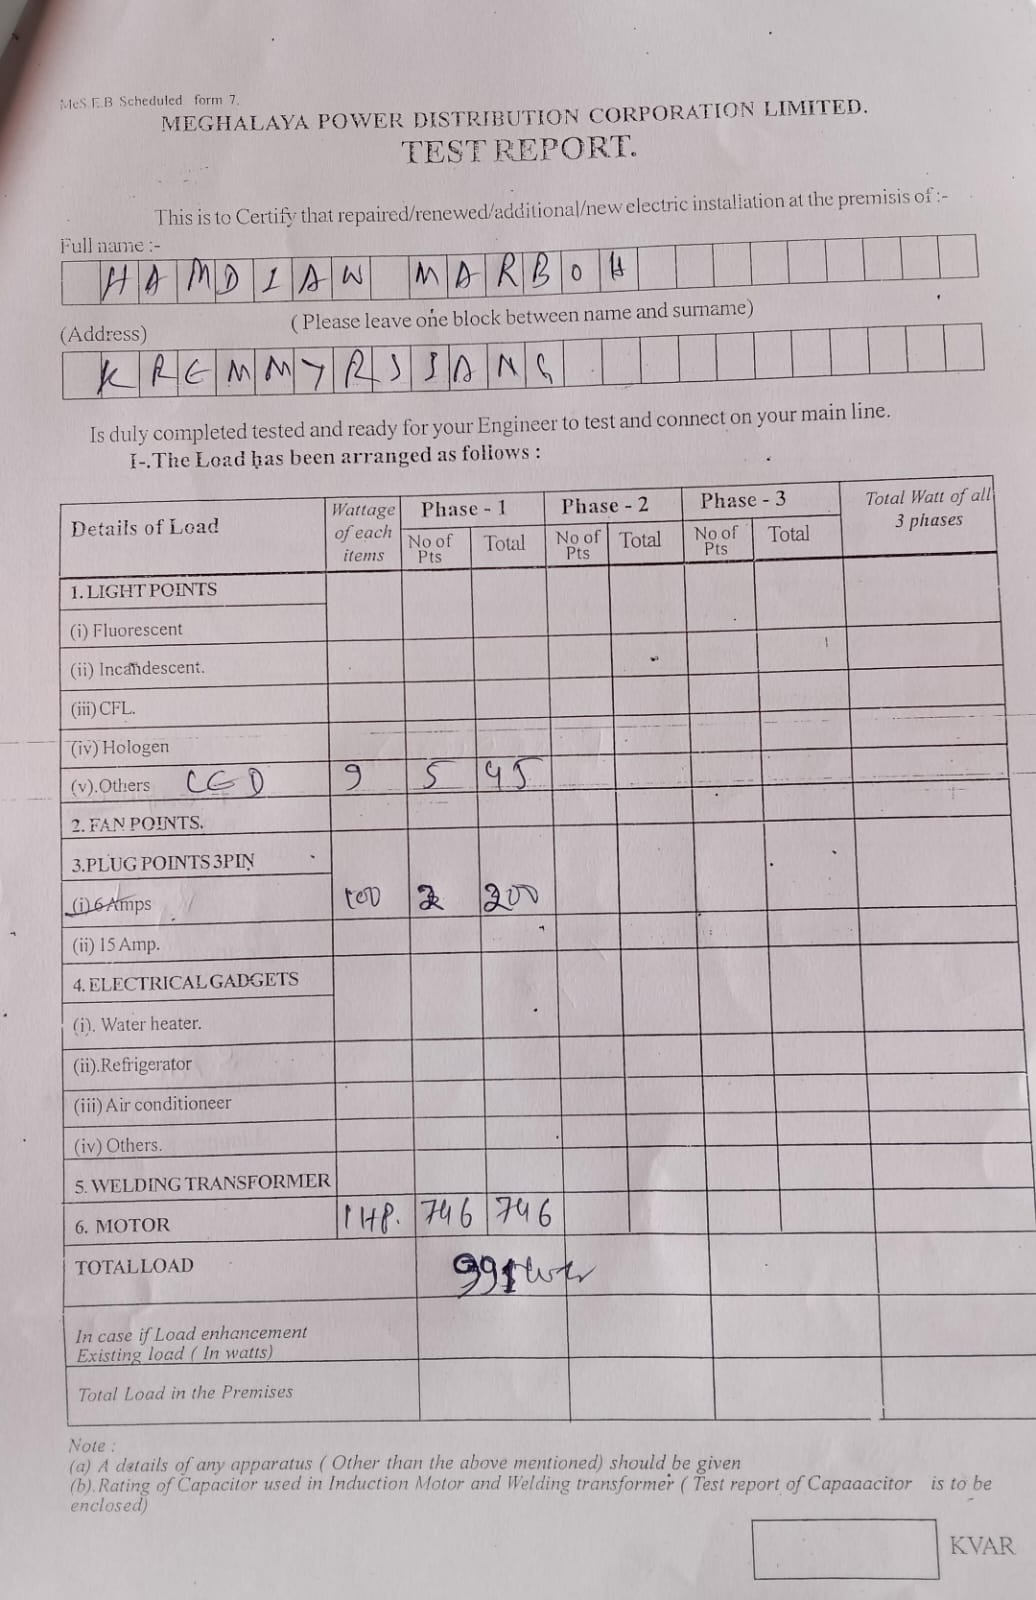 MeS.E.B Scheduled form 7.
MEGHALAYA POWER DISTRIBUTION CORPORATION LIMITED.
TEST REPORT.
This is to Certify that repaired/renewed/additional/new electric installation at the premisis of :-
Full name :-
HAMDIAW MARBOH
(Address) ( Please leave one block between name and surname)
KREMMYRSIANG
Is duly completed tested and ready for your Engineer to test and connect on your main line.
I-.The Load has been arranged as follows :
Details of Load Wattage of each items Phase - 1 Phase - 2 Phase - 3 Total Watt of all 3 phases
No of Pts Total No of Pts Total No of Pts Total
1. LIGHT POINTS
(i) Fluorescent
(ii) Incandescent.
(iii) CFL.
(iv) Hologen
(v).Others LED 9 5 45
2. FAN POINTS.
3.PLUG POINTS 3PIN
(i) 6 Amps 100 2 200
(ii) 15 Amp.
4. ELECTRICAL GADGETS
(i). Water heater.
(ii).Refrigerator
(iii) Air conditioneer
(iv) Others.
5. WELDING TRANSFORMER
6. MOTOR 1 HP. 746 746
TOTAL LOAD 991
In case if Load enhancement
Existing load ( In watts)
Total Load in the Premises
Note :
(a) A details of any apparatus ( Other than the above mentioned) should be given
(b). Rating of Capacitor used in Induction Motor and Welding transformer ( Test report of Capaaacitor is to be
enclosed)
KVAR